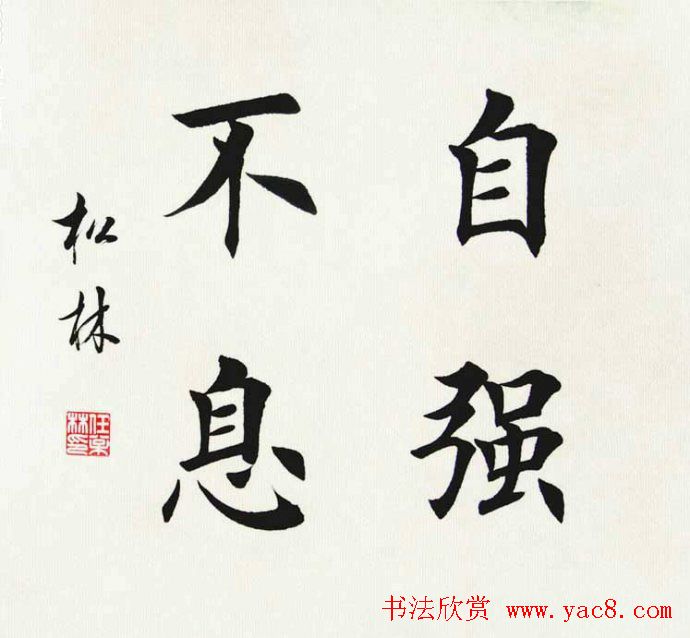 自强
不息
松林
任枲
林印
书法欣赏 www.yac8.com